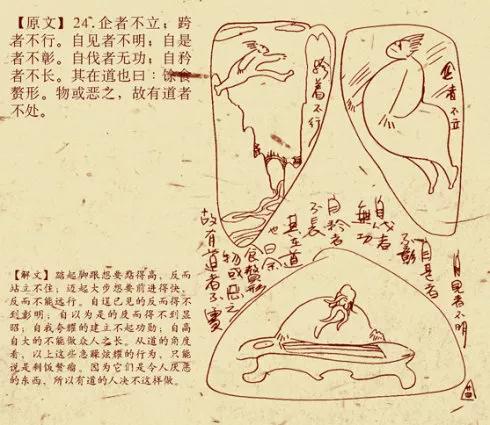 【原文】24.企者不立；跨
者不行。自见者不明；自是
者不彰。自伐者无功；自矜
者不长。其在道也曰：馀食
赘形。物或恶之，故有道者
不处。
跨者不行
企者不立
自见者不明
自是者
不彰
自伐者
无功
自矜者
不长
其在道
也曰余
食赘形
物或恶之
故有道者不处
【解文】踮起脚跟想要站得高，反而
站立不住；迈起大步想要前进得快，
反而不能远行。自逞已见的反而得不
到彰明；自以为是的反而得不到显
昭；自我夸耀的建立不起功勋；自高
自大的不能做众人之长。从道的角度
看，以上这些急躁炫耀的行为，只能
说是剩饭赘瘤。因为它们是令人厌恶
的东西，所以有道的人决不这样做。